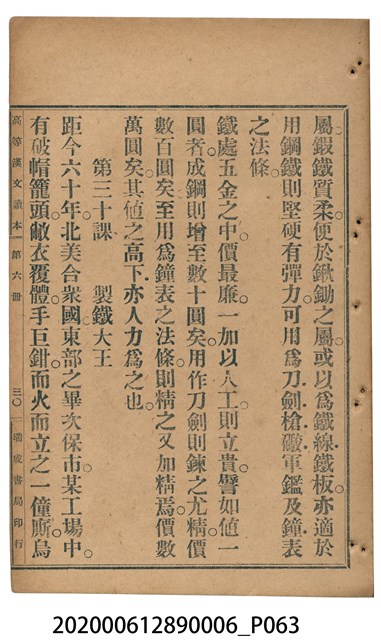 屬鍛鐵質柔。便於鍬鋤之屬。或以爲鐵線鐵板。亦適於
用。鋼鐵則堅硬有彈力。可用爲刀劍槍礮軍鑑及鐘表
之法條。
鐵處五金之中。價最廉。一加以人工。則立貴。譬如值一
圓者。成鋼則增至數十圓矣。用作刀劍則鍊之尤精。價
數百圓矣。至用爲鐘表之法條。則精之又加精焉。價數
萬圓矣。其値之高下。亦人力爲之也。
第三十課 製鐵大王
距今六十年。北美合衆國東部之畢次保市某工場中。
有破帽籠頭。敝衣覆體。手巨鉗而火而立之一僮廝。烏
高等漢文讀本 第六冊 三〇 瑞成書局印行
202000612890006_P063